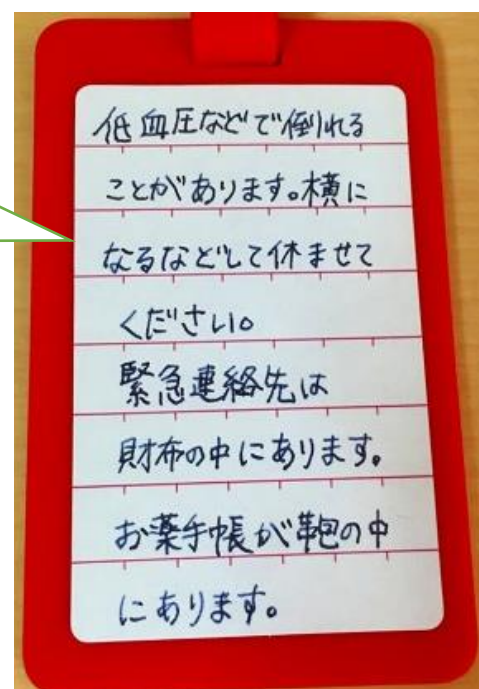 低血圧などで倒れる
ことがあります。横に
なるなどして休ませて
ください。
緊急連絡先は
財布の中にあります。
お薬手帳が鞄の中
にあります。